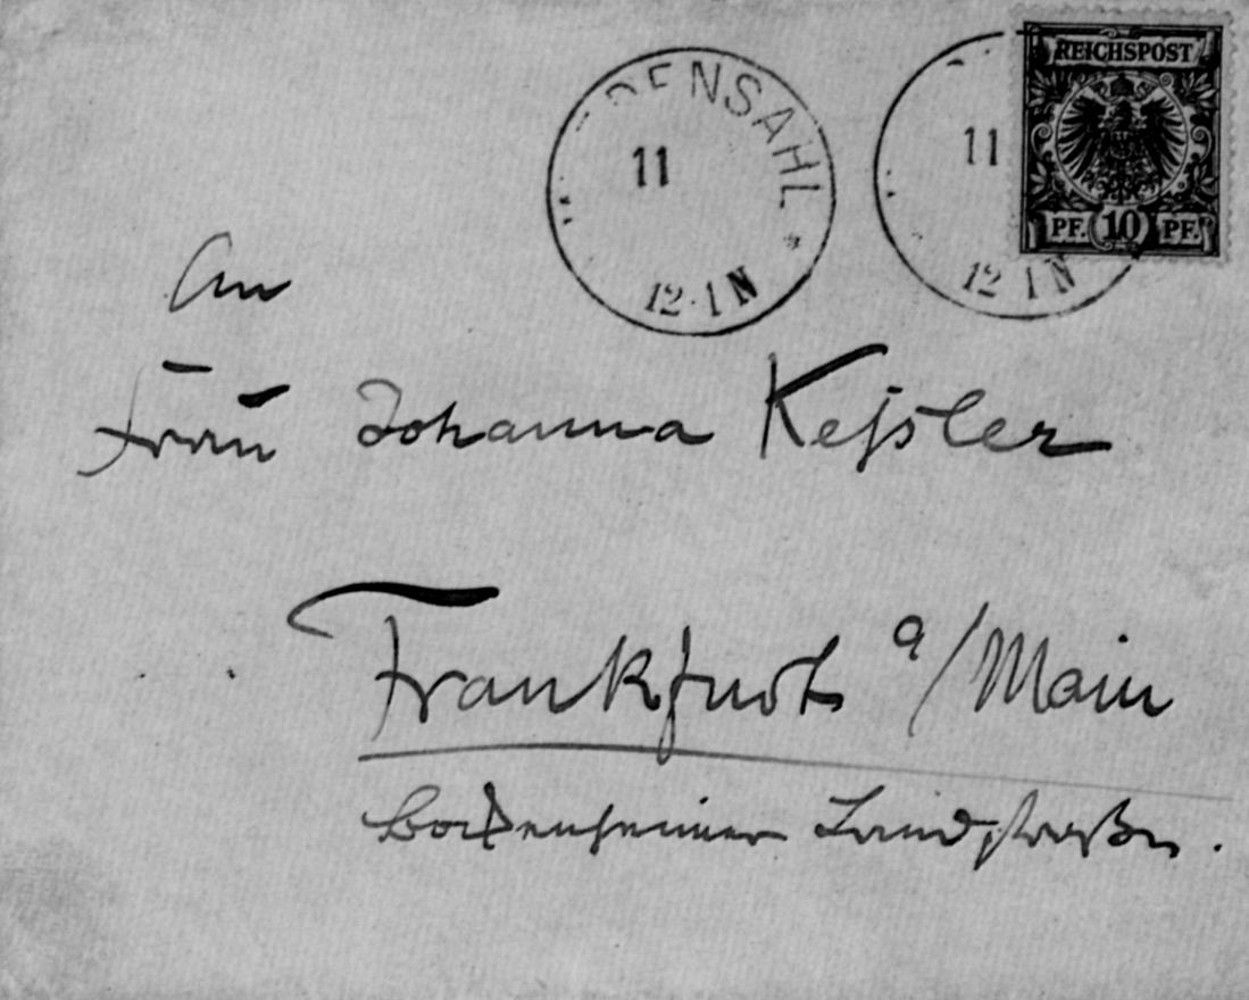 REICHSPOST
DENSAHL
11
11
PF. 10 PF.
12-1N
12 1N
An
Frau Johanna Keſsler
Frankfurt a/Main
Bockenheimer Landſtraße.